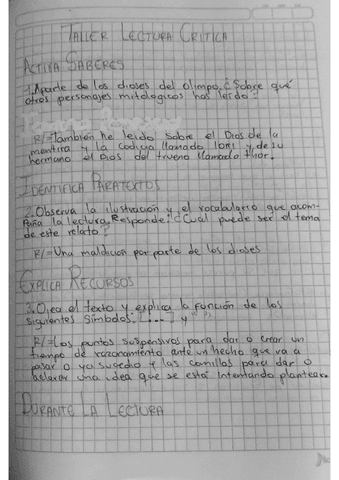 TALLER LECTURA CRITICA
ACTIVA SABERES
1. Aparte de los dioses del olimpo, ¿Sobre qué
otros personajes mitologicos has leido?
R/= También he leido sobre el Dios de la
mentira y la codicia llamado loki y de su
hermano el Dios del trueno llamado thor.
IDENTIFICA PARATEXTOS
2. Observa la ilustración y el vocabulario que acom-
paña la lectura. Responde: ¿Cual puede ser el tema
de este relato?
R/= Una maldicion por parte de los dioses
EXPLICA RECURSOS
3. Ojea el texto y explica la función de los
siguientes simbolos: [...] y " ".
R/= Los puntos suspensivos para dar o crear un
tiempo de razonamiento ante un hecho que va a
pasar o ya sucedio y las comillas para dar o
aclarar una idea que se está intentando plantear.
DURANTE LA LECTURA